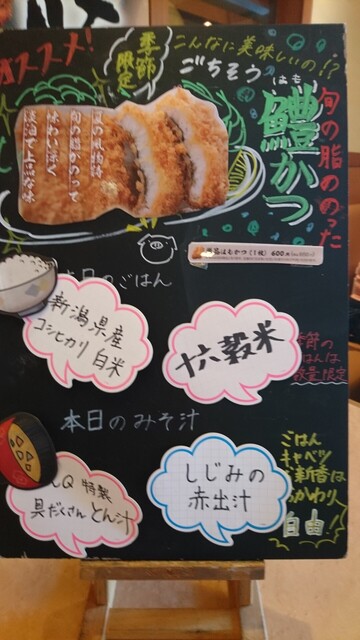 オススメ!
季節
限定
こんなに美味しいの!?
ごちそうの
はも
鱧かつ
旬の脂ののった
夏の風物詩
旬の脂がのって
味わい深く
淡泊で上品な味
はもかつ(1枚) 600円
本日のごはん
新潟県産
コシヒカリ 白米
十六穀米
季節の
ごはんは
数量限定
本日のみそ汁
特製
具だくさん とん汁
しじみの
赤出汁
ごはん
キャベツ
新香は
おかわり
自由!